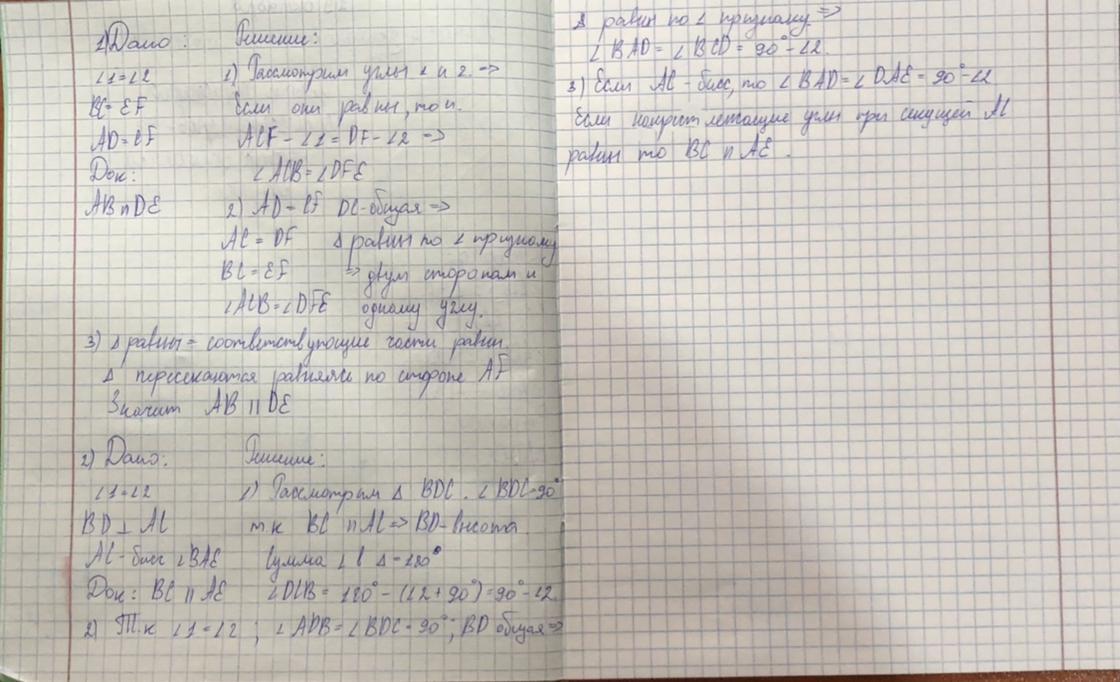 1) Дано: Решение:
∠1=∠2 1) Рассмотрим углы 1 и 2. =>
BC=EF Если они равны, то и.
AD=CF ACF-∠1=DF-∠2 =>
Док: ∠ACB=∠DFE
AB॥DE 2) AD-CF DC-общая =>
AC=DF Δ равны по ∠ признаку
BC=EF => двум сторонам и
∠ACB=∠DFE одному углу.
3) Δ равны = соответствующие части равны.
Δ пересекаются по стороне AF
Значит AB॥DE
2) Дано: Решение:
∠1=∠2 1) Рассмотрим Δ BDC. ∠BDC=90°
BD⊥AC т к BC ॥ AC => BD-высота
AC-бисс ∠BAE Сумма ∠ в Δ=180°
Док: BC॥AE ∠DCB=180°-(∠2+90°)=90°-∠2
2) Т.к ∠1=∠2; ∠ADB=∠BDC=90°; BD общая =>
Δ равны по ∠ признаку =>
∠BAD=∠BCD=90°-∠2.
3) Если AC-бисс, то ∠BAD=∠DAE=90°-∠2
Если накрест лежащие углы при секущей AC
равны то BC॥AE.